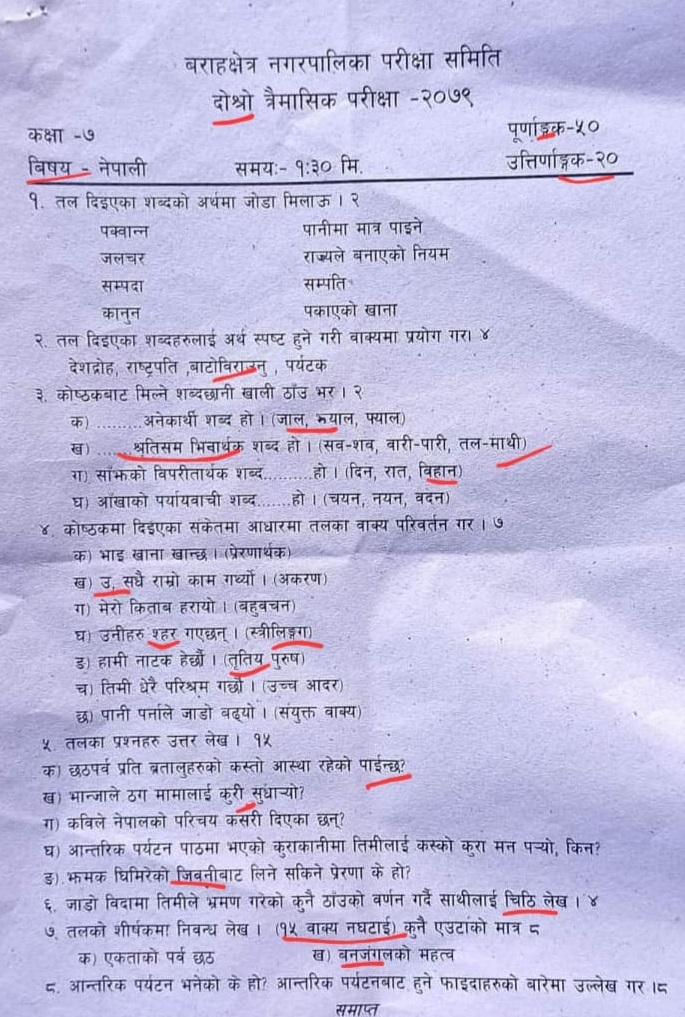 बराहक्षेत्र नगरपालिका परीक्षा समिति
दोश्रो त्रैमासिक परीक्षा -२०७९
कक्षा -७ पूर्णाङ्कक-५०
बिषय - नेपाली समयः- १:३० मि. उत्तिर्णाङ्गक-२०
१. तल दिइएका शब्दको अर्थमा जोडा मिलाऊ । २
पक्वान्न पानीमा मात्र पाइने
जलचर राज्यले बनाएको नियम
सम्पदा सम्पति
कानुन पकाएको खाना
२. तल दिइएका शब्दहरुलाई अर्थ स्पष्ट हुने गरी वाक्यमा प्रयोग गर। ४
देशद्रोह, राष्ट्रपति ,बाटोविराउनु , पर्यटक
३. कोष्ठकबाट मिल्ने शब्दछानी खाली ठाँउ भर । २
क) .........अनेकार्थी शब्द हो । (जाल, झ्याल, फ्याल)
ख) .....श्रृतिसम भिन्नार्थक शब्द हो । (सब-शव, वारी-पारी, तल-माथी)
ग) सांझको विपरीतार्थक शब्द..........हो । (दिन, रात, विहान)
घ) आंखाको पर्यायवाची शब्द.......हो । (चयन, नयन, वदन)
४. कोष्ठकमा दिइएका संकेतमा आधारमा तलका वाक्य परिवर्तन गर । ७
क) भाइ खाना खान्छ । (प्रेरणार्थक)
ख) उ, सधै राम्रो काम गर्थ्यो । (अकरण)
ग) मेरो किताब हरायो । (बहुबचन)
घ) उनीहरु श्हर गएछन् । (स्त्रीलिङ्गग)
ङ) हामी नाटक हेर्छौ । (तृतिय पुरुष)
च) तिमी धेरै परिश्रम गर्छौ । (उच्च आदर)
छ) पानी पर्नाले जाडो बढ्यो । (संयुक्त वाक्य)
५ तलका प्रश्नहरु उत्तर लेख । १५
क) छठपर्व प्रति ब्रतालुहरुको कस्तो आस्था रहेको पाईन्छ?
ख) भान्जाले ठग मामालाई कुरी सुधार्‍यो?
ग) कविले नेपालको परिचय कसरी दिएका छन्?
घ) आन्तरिक पर्यटन पाठमा भएको कुराकानीमा तिमीलाई कस्को कुरा मन पर्‍यो, किन?
ङ) झमक घिमिरेको जिबनीबाट लिने सकिने प्रेरणा के हो?
६. जाडो विदामा तिमीले भ्रमण गरेको कुनै ठाँउको वर्णन गर्दै साथीलाई चिठि लेख । ४
७. तलको शीर्षकमा निवन्ध लेख । (१५ वाक्य नघटाई) कुनै एउटाको मात्र ८
क) एकताको पर्व छठ ख) बनजंगलको महत्व
८. आन्तरिक पर्यटन भनेको के हो? आन्तरिक पर्यटनबाट हुने फाइदाहरुको बारेमा उल्लेख गर ।८
समाप्त